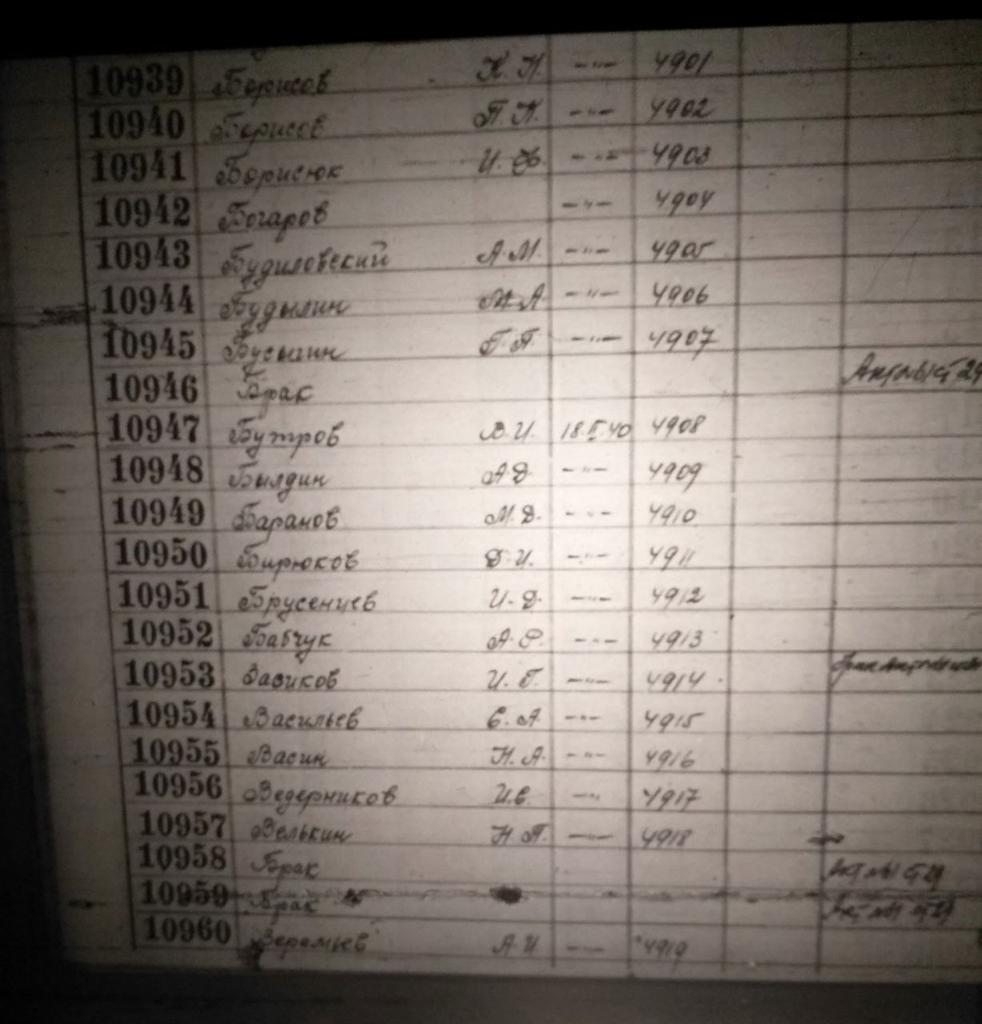 10939 Борисов К. Н. -"- 4901
10940 Борисов П. К. -"- 4902
10941 Борисюк И. Ф. -"- 4903
10942 Богаров -"- 4904
10943 Будиловский А. М. -"- 4905
10944 Будылин М. А. -"- 4906
10945 Бусыгин Г. П. -"- 4907
10946 Брак Акт
10947 Бутров В. И. 18.V.40 4908
10948 Былдин А. Д. -"- 4909
10949 Баранов М. Д. -"- 4910
10950 Бирюков Д. И. -"- 4911
10951 Брусенцев И. Д. -"- 4912
10952 Бабчук А. -"- 4913
10953 И. Г. -"- 4914
10954 Васильев Е. А. -"- 4915
10955 Васин Н. А. -"- 4916
10956 Ведерников И. Е. -"- 4917
10957 Велькин Н. П. -"- 4918
10958 Брак Акт
10959 Брак Акт
10960 Веремьев А. И -"- 4919